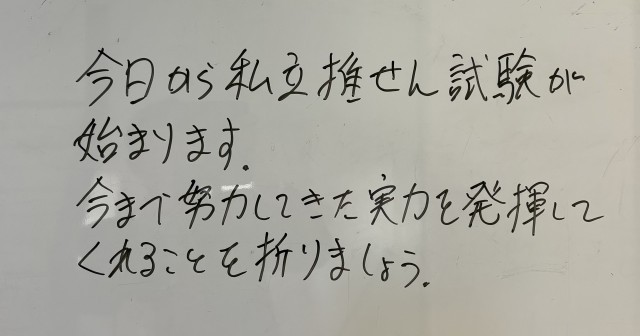 今日から私立推せん試験が
始まります.
今まで努力してきた実力を発揮して
くれることを折りましょう.